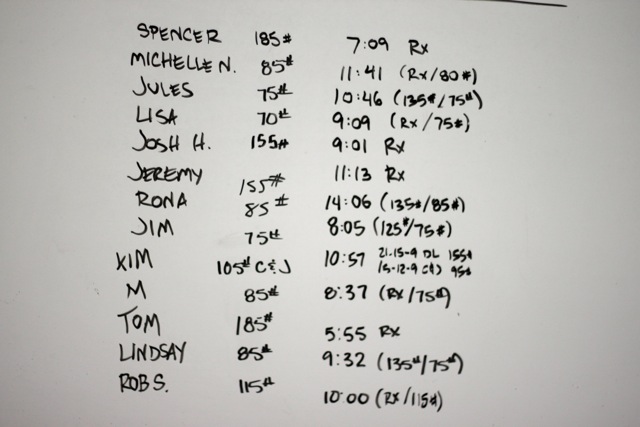 SPENCER 185# 7:09 Rx
MICHELLE N. 85# 11:41 (Rx/80#)
JULES 75# 10:46 (135#/75#)
LISA 70# 9:09 (Rx/75#)
JOSH H. 155# 9:01 Rx
JEREMY 155# 11:13 Rx
RONA 85# 14:06 (135#/85#)
JIM 75# 8:05 (125#/75#)
KIM 105# C&J 10:57 21-15-9 DL 155#
15-12-9 CJ 95#
M 85# 8:37 (Rx/75#)
TOM 185# 5:55 Rx
LINDSAY 85# 9:32 (135#/75#)
ROB S. 115# 10:00 (Rx/115#)